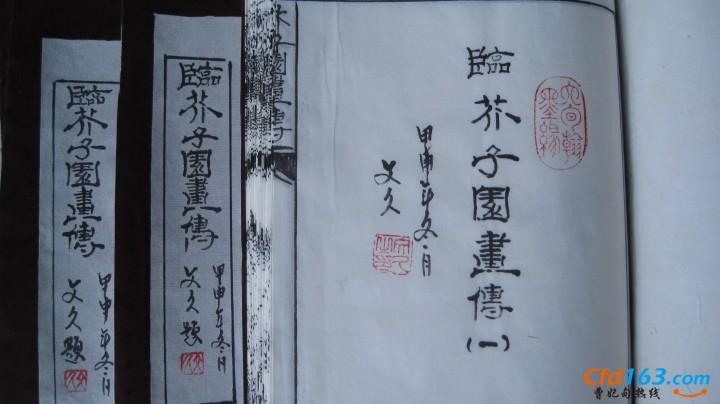 臨芥子園畫傳
甲申年冬月
文久題
臨芥子園畫傳
甲申年冬月
文久題
芥子園畫傳
臨芥子園畫傳(一)
甲申年冬月
文久
Cfd163.com
曹妃甸热线